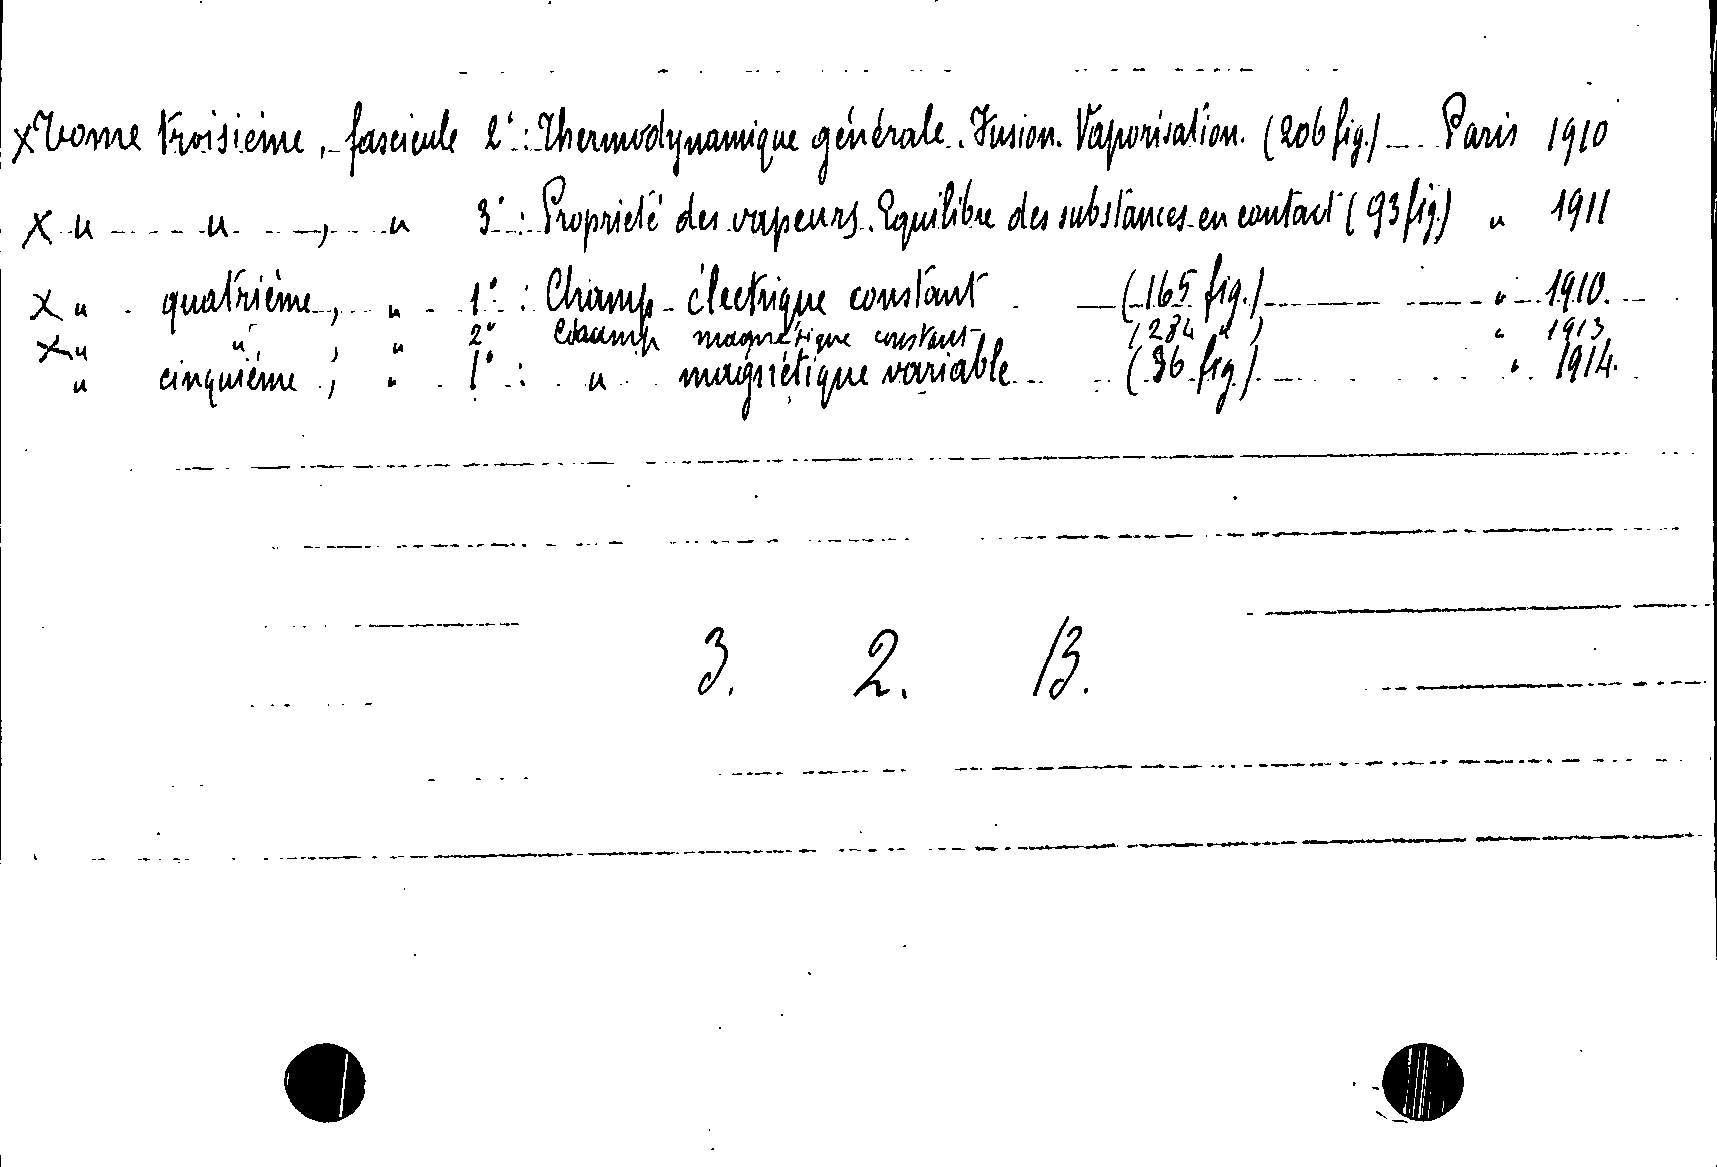 X Tome troisième, fascicule 2° : Thermodynamique générale. Fusion. Vaporisation. (206 fig.) Paris 1910
X " " , " 3° : Propriété des vapeurs. Equilibre des substances en contact (93 fig.) " 1911
X " quatrième, " 1° : Champ électrique constant (165 fig.) " 1910.
X " " , " 2° Champ magnétique constant (284 " ) " 1913
" cinquième, " 1° : " magnétique variable (36 fig.) " 1914.
3. 2. B.